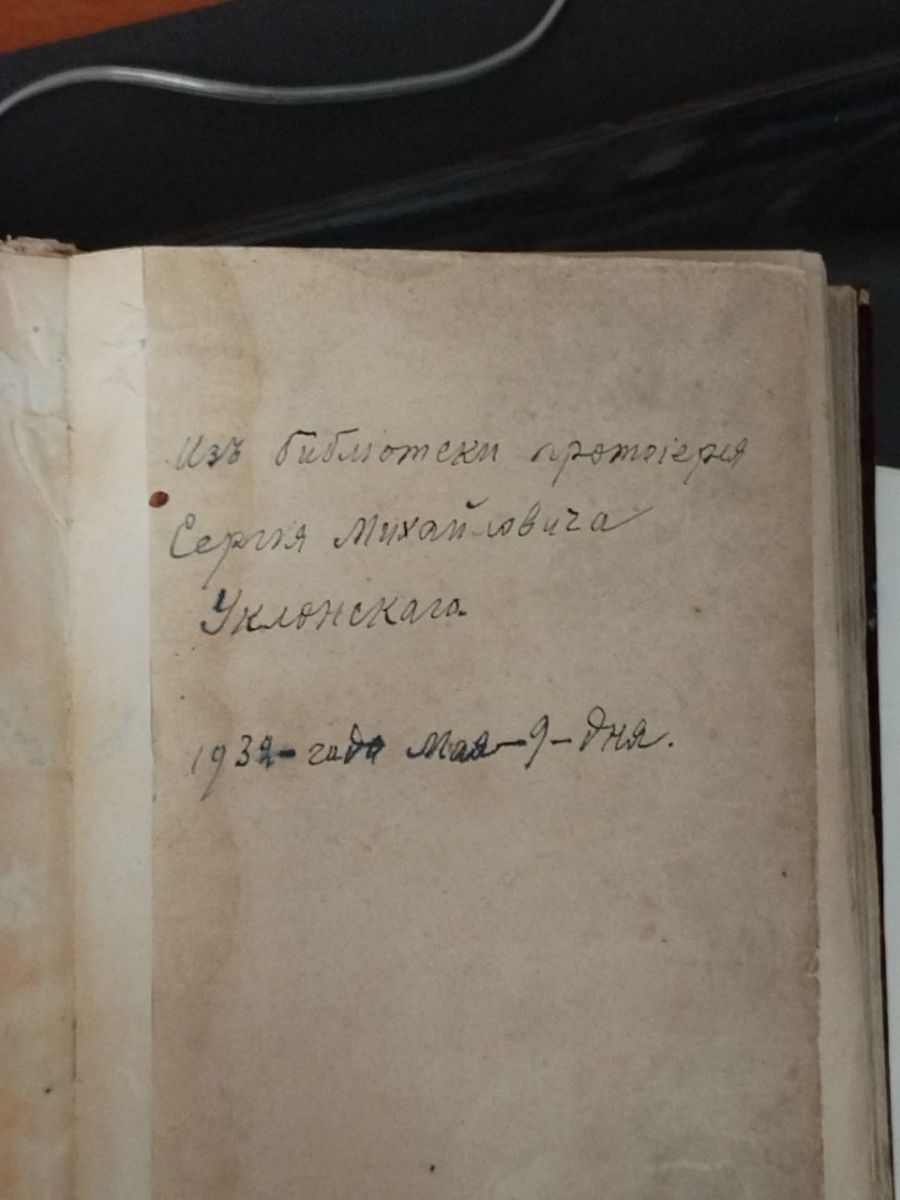 Изъ библіотеки протоіерея
Сергія Михайловича
Уклонскаго
1932-года Мая-9-дня.